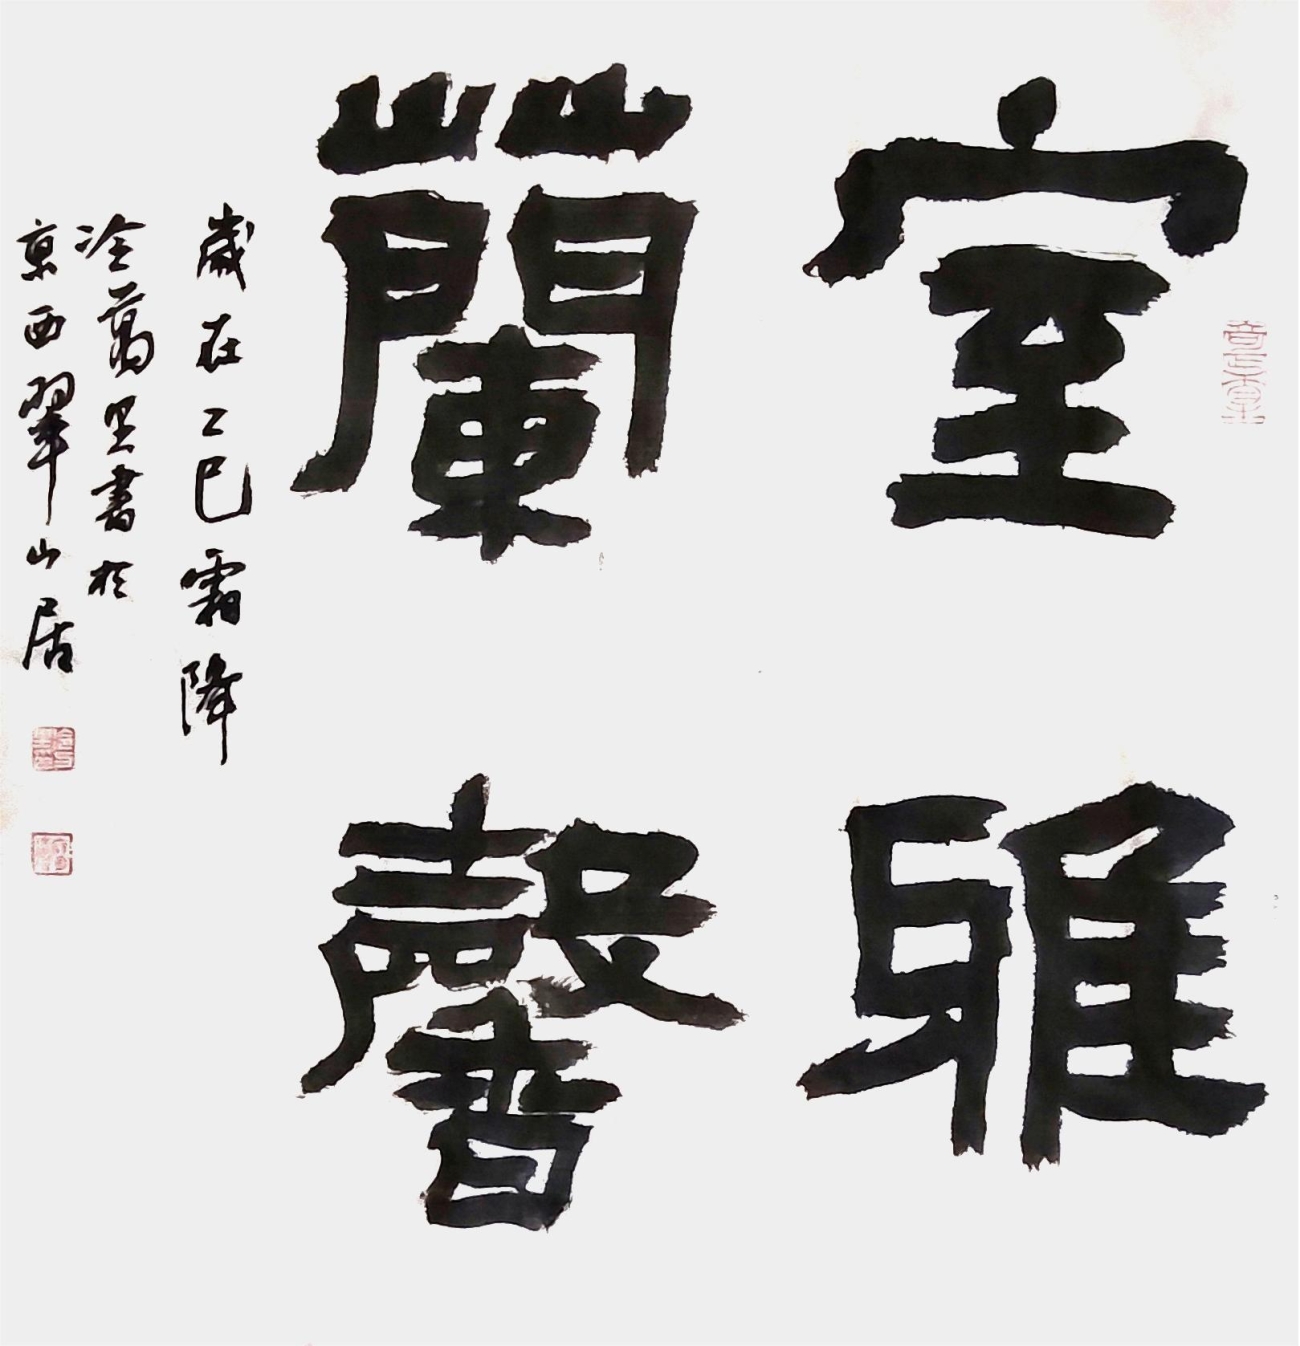 室雅
蘭馨
歲在乙巳霜降
冷萬里書於
京西翠山居